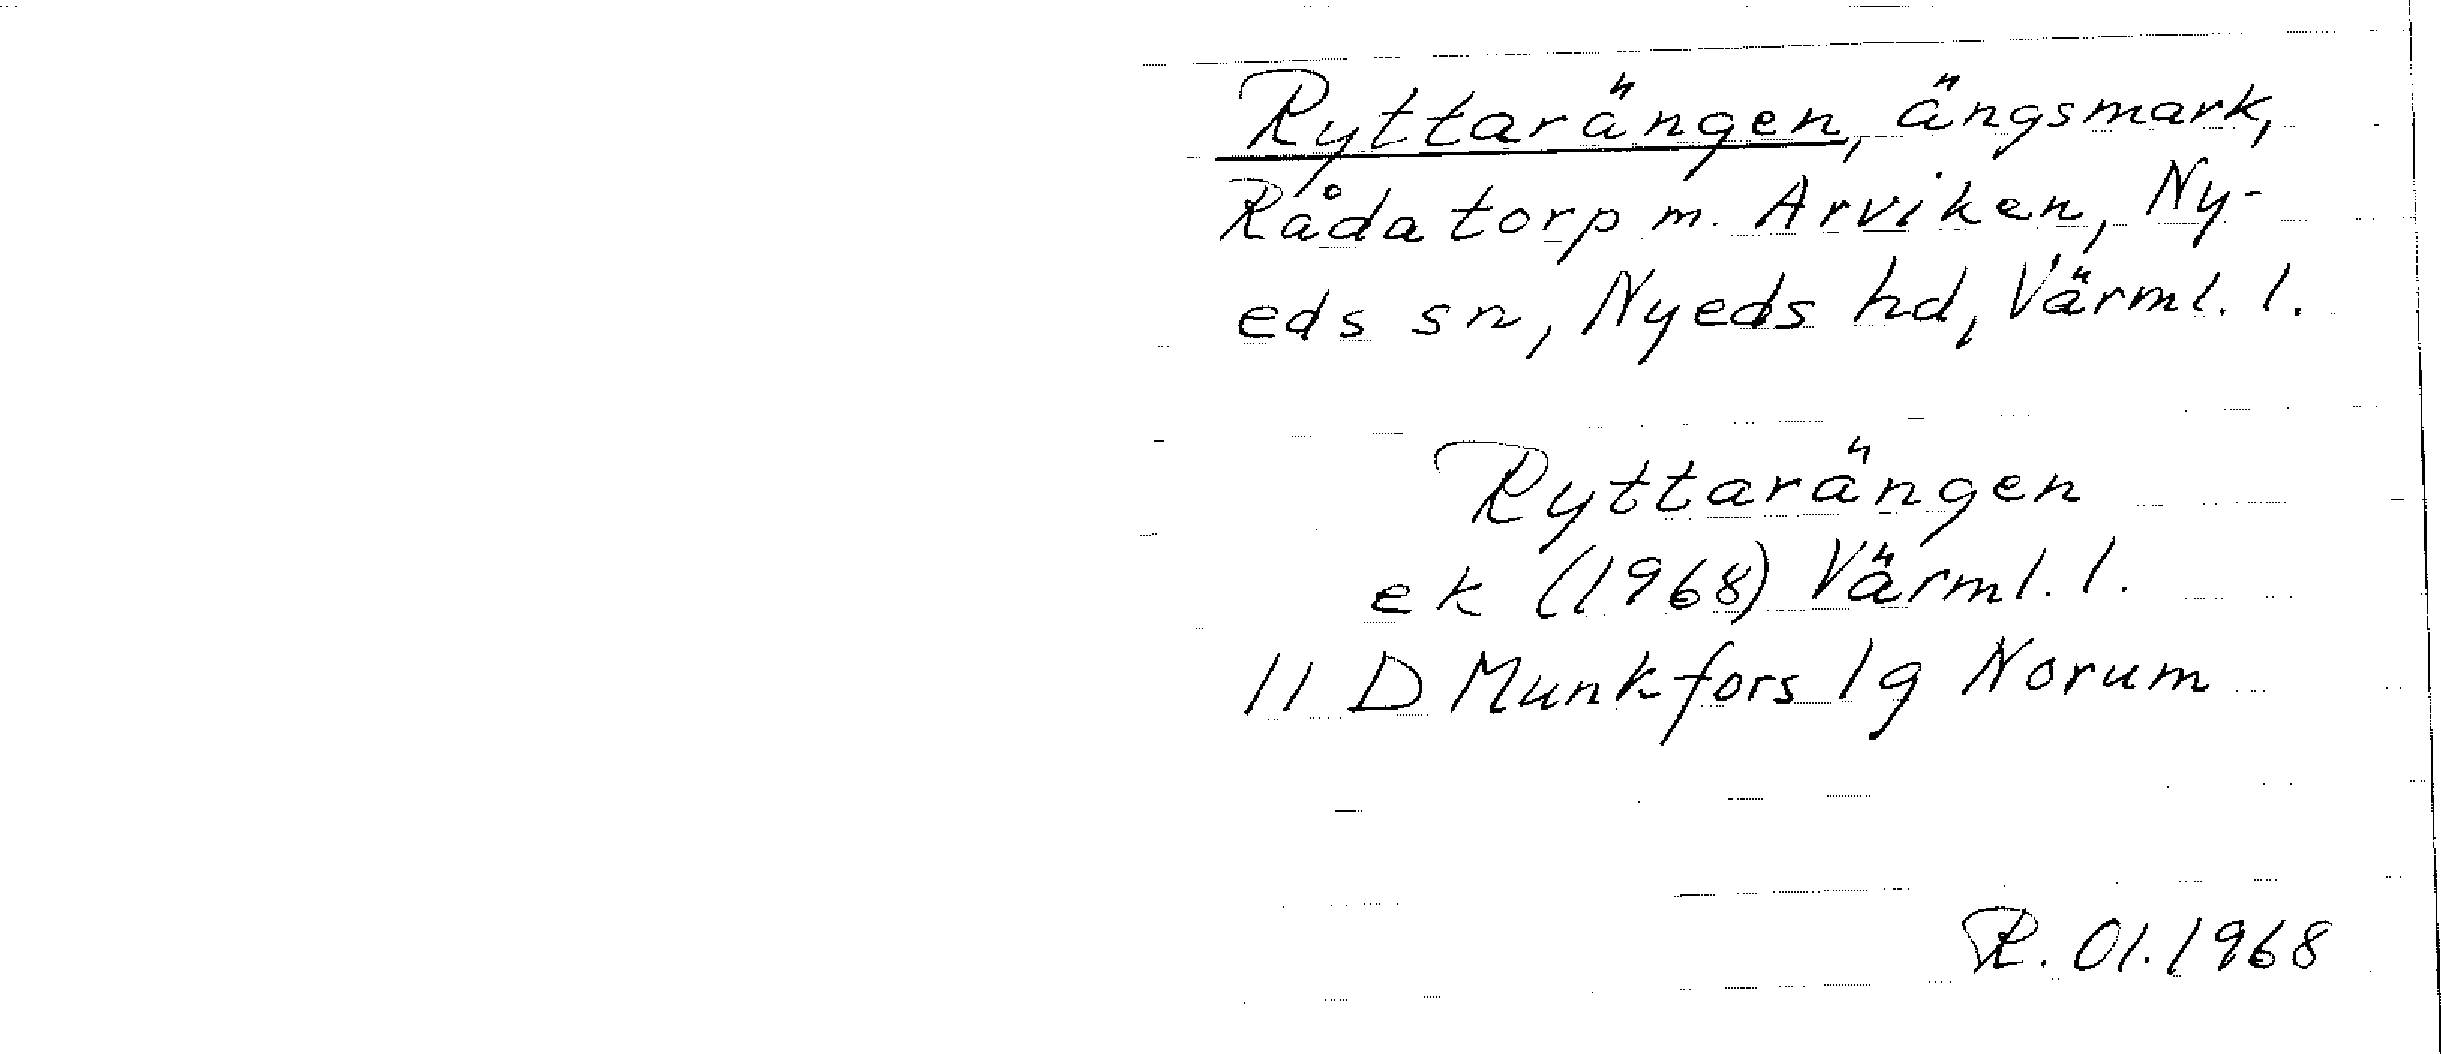 Ryttarängen, ängsmark,
Råda torp m. Arviken, Ny-
eds sn, Nyeds hd, Värml. l.
Ryttarängen
ek (1968) Värml. l.
11 D Munkfors 1g Norum
R. Ol. 1968